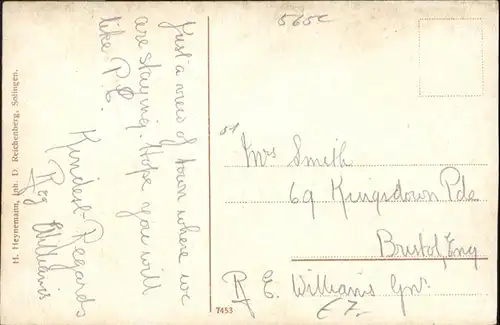 565c
Just a view of town where we
are staying. Hope you will
like P.C.
Kindest Regards
Reg Williams
H. Heynemann, Jph. D. Reichenberg, Solingen.
Mrs Smith
69 Kingsdown Pde
Bristol, Eng
E. Williams Gnr
£7.-
7453